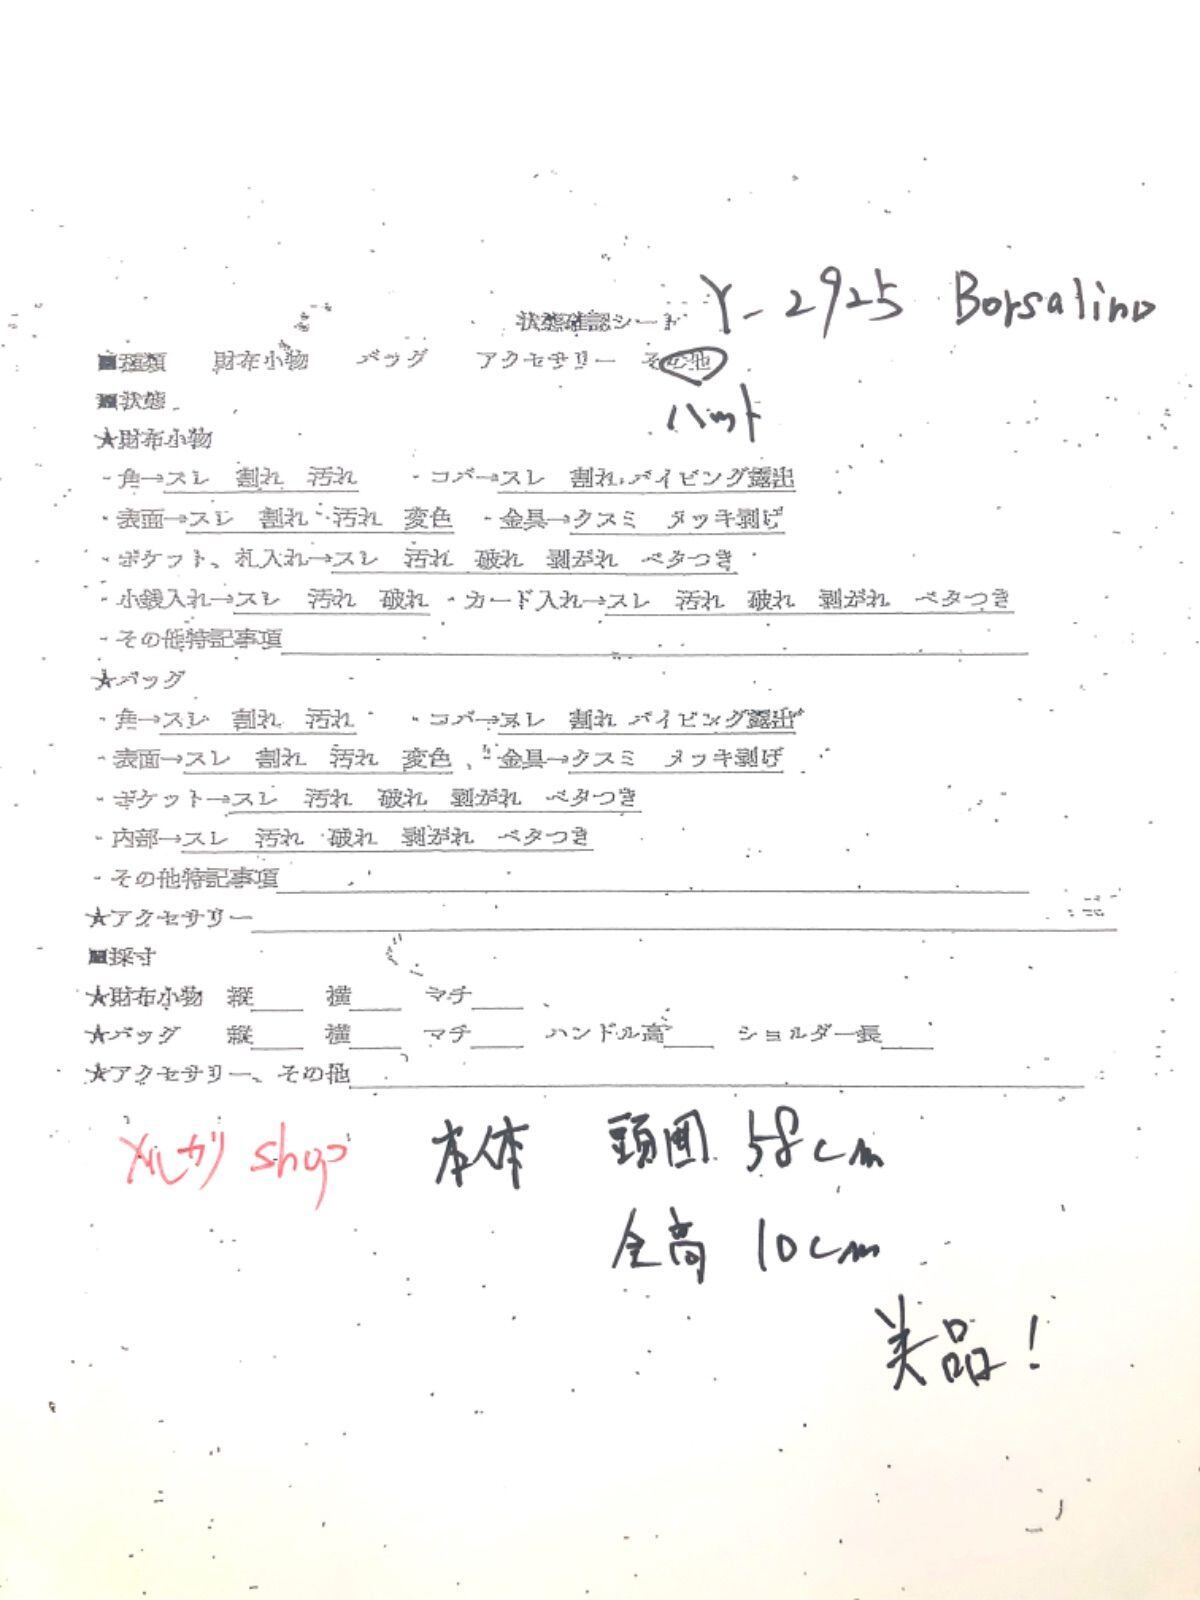 状態確認シート Y-2925 Borsalino
■種類 財布小物 バッグ アクセサリー その他
ハット
■状態
★財布小物
・角→スレ 割れ 汚れ ・コバ→スレ 割れ パイピング露出
・表面→スレ 割れ 汚れ 変色 ・金具→クスミ メッキ剥げ
・ポケット、札入れ→スレ 汚れ 破れ 剥がれ ベタつき
・小銭入れ→スレ 汚れ 破れ ・カード入れ→スレ 汚れ 破れ 剥がれ ベタつき
・その他特記事項
★バッグ
・角→スレ 割れ 汚れ ・コバ→スレ 割れ パイピング露出
・表面→スレ 割れ 汚れ 変色 ・金具→クスミ メッキ剥げ
・ポケット→スレ 汚れ 破れ 剥がれ ベタつき
・内部→スレ 汚れ 破れ 剥がれ ベタつき
・その他特記事項
★アクセサリー
■採寸
★財布小物 縦 横 マチ
★バッグ 縦 横 マチ ハンドル高 ショルダー長
★アクセサリー、その他
メルカリ shop 本体 頭囲 58cm
全高 10cm
美品!